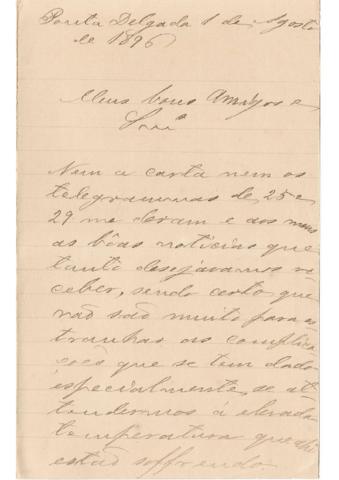 Ponta Delgada 1 de Agosto
de 1896
Meus bons Amigos e
Snr.ª
Nem a carta nem os
telegrammas de 25 e
29 me deram e aos meus
as bôas noticias que
tanto desejavamos re
ceber, sendo certo que
não são muito para es
tranhar as complica
ções que se tem dado
especialmente se at
tendermos á elevada
temperatura que ahi
estão soffrendo